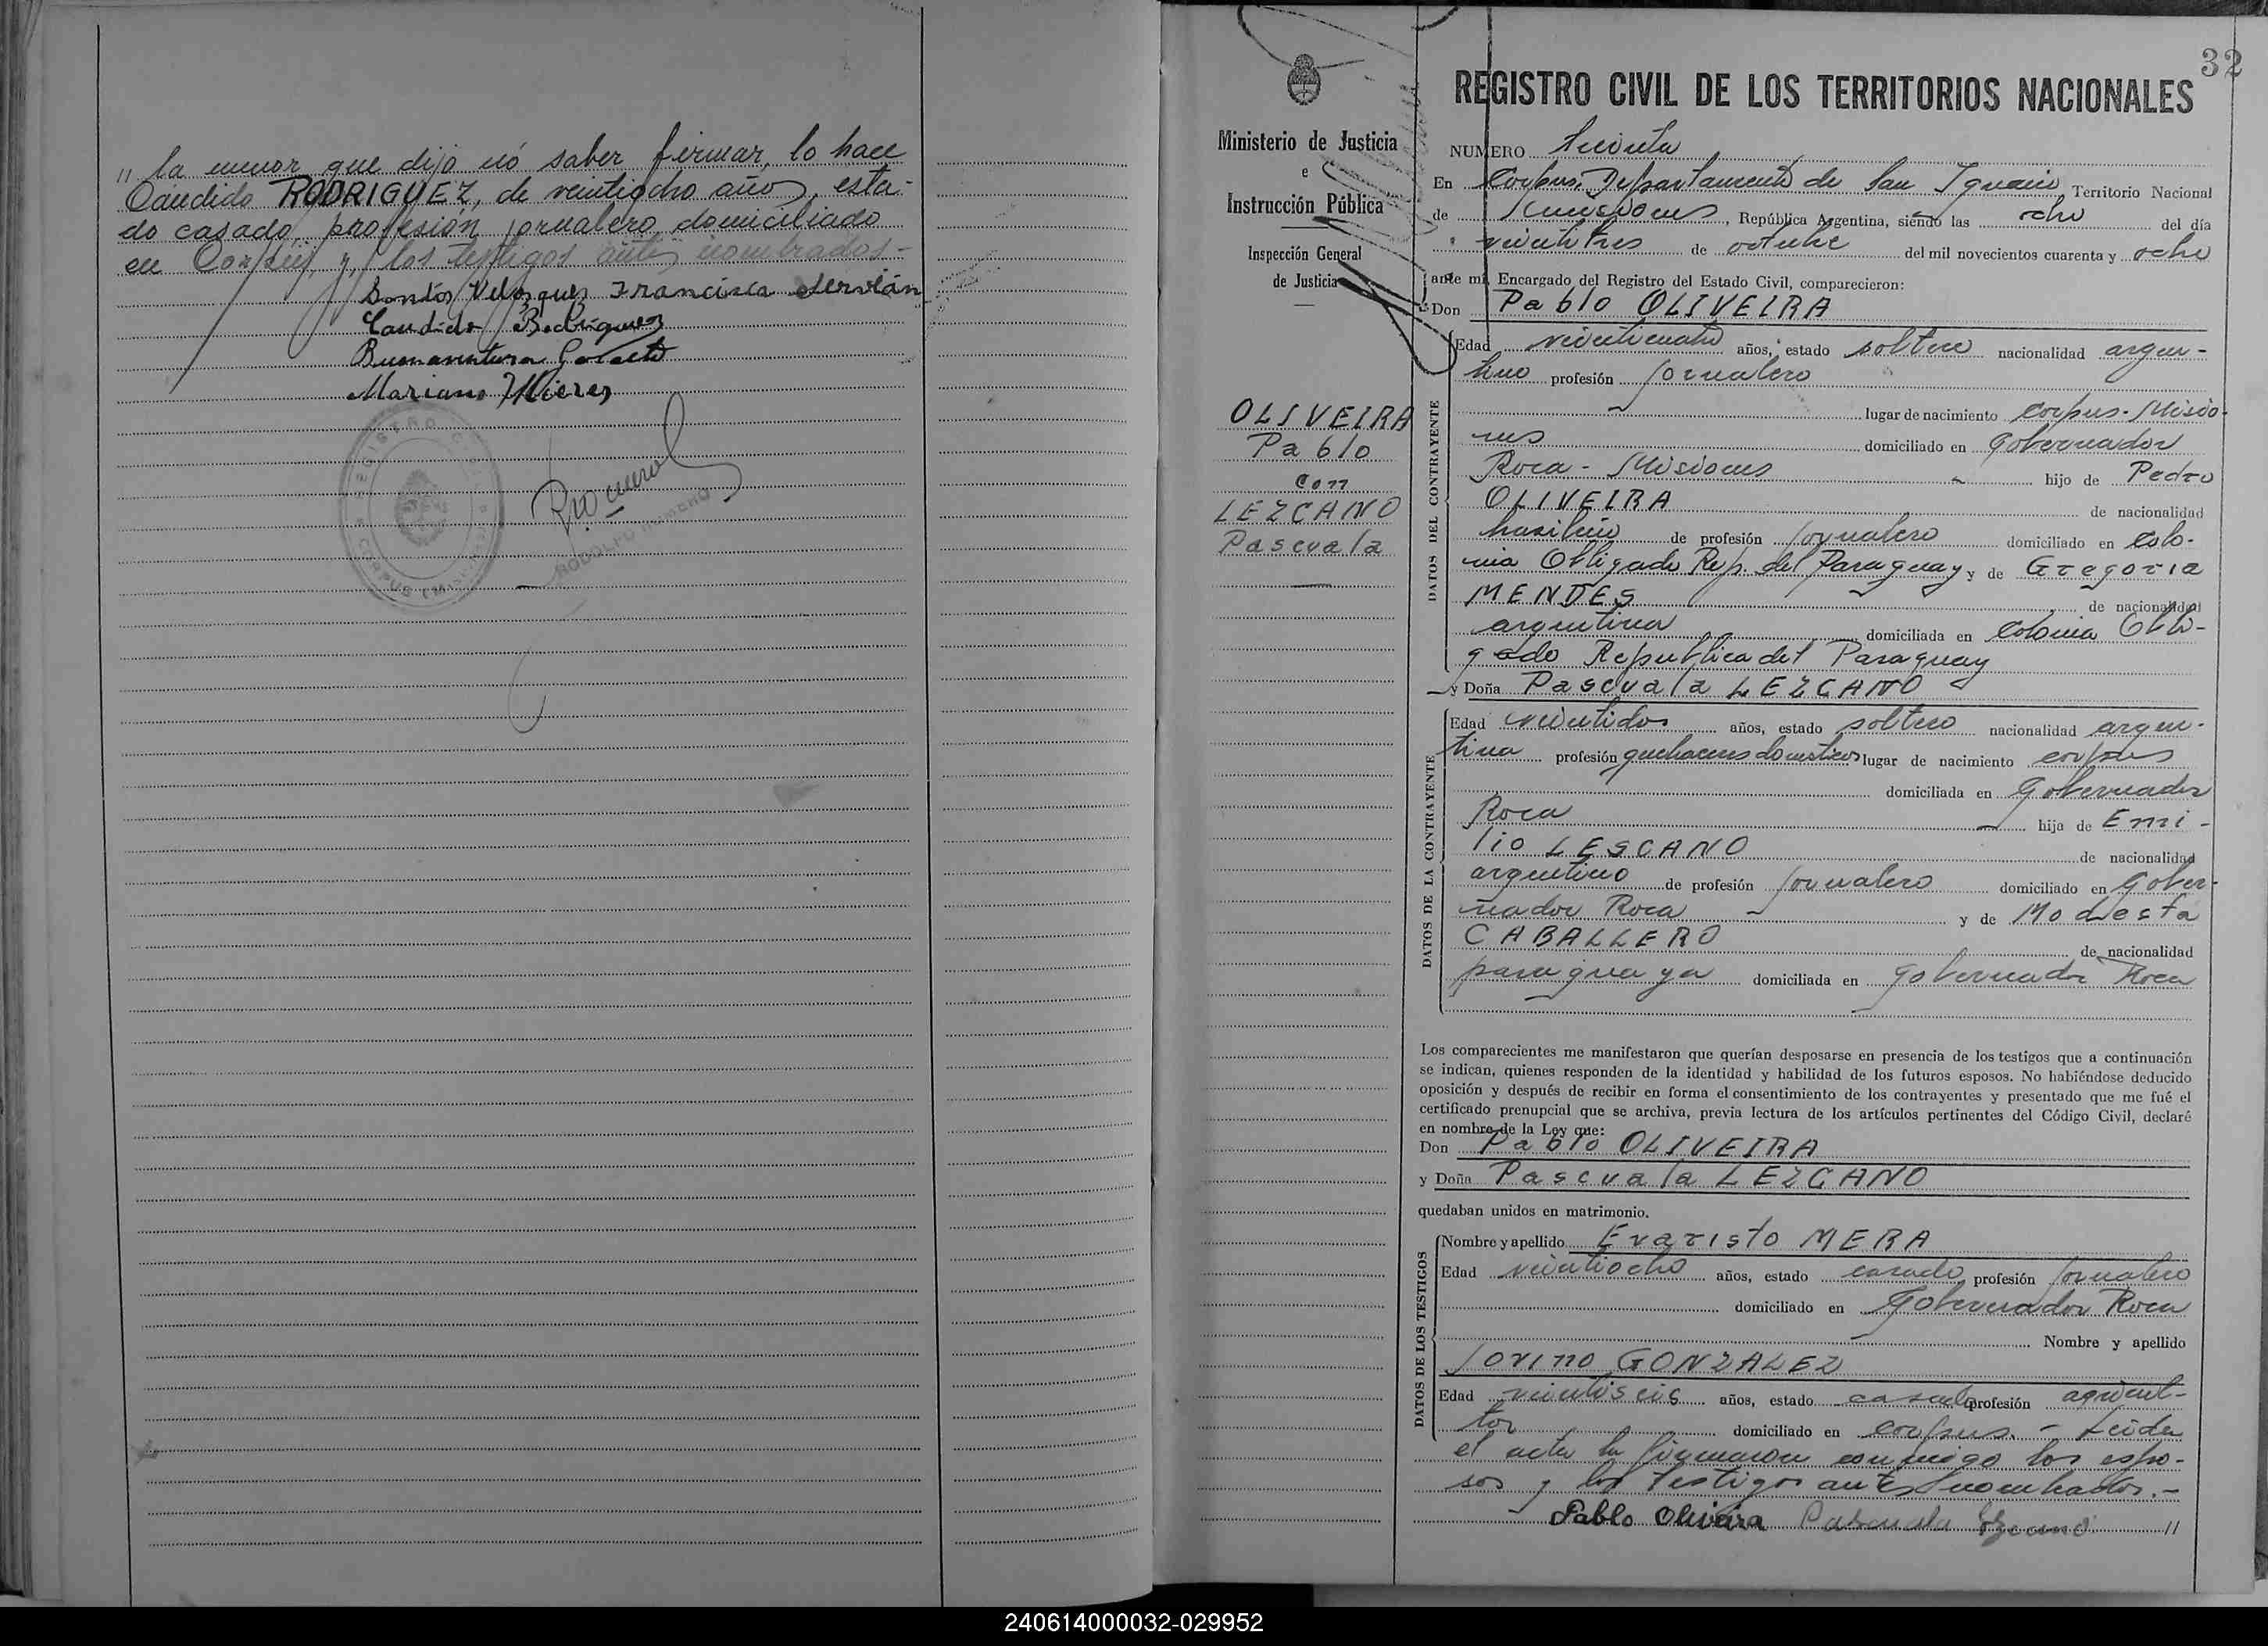 " la menor que dijo nó saber firmar, lo hace
Cándido RODRIGUEZ, de veintiocho años, esta-
do casado, profesión jornalero, domiciliado
en Corpus, y los testigos antes nombrados-
Santos Velasques Francisca Servián
Candido Rodriguez
Buenaventura
Mariano Mieres
REGISTRO
CORPUS (Misiones)
RODOLFO ROMERO
32
REGISTRO CIVIL DE LOS TERRITORIOS NACIONALES
Ministerio de Justicia
e
Instrucción Pública
Inspección General
de Justicia
OLIVEIRA
Pablo
con
LEZCANO
Pascuala
NUMERO Treinta
En Corpus, Departamento de San Ignacio, Territorio Nacional
de Misiones, República Argentina, siendo las ocho del día
veintitres de octubre del mil novecientos cuarenta y ocho
ante mí, Encargado del Registro del Estado Civil, comparecieron:
Don Pablo OLIVEIRA
DATOS DEL CONTRAYENTE
Edad veinticuatro años, estado soltero nacionalidad argen-
tino profesión jornalero
lugar de nacimiento Corpus-Misio-
nes domiciliado en Gobernador
Roca - Misiones hijo de Pedro
OLIVEIRA de nacionalidad
brasileño de profesión jornalero domiciliado en Colo-
nia Obligado Rep. del Paraguay y de Gregoria
MENDES de nacionalidad
argentina domiciliada en Colonia Obli-
gado Republica del Paraguay
y Doña Pascuala LEZCANO
DATOS DE LA CONTRAYENTE
Edad veintidos años, estado soltero nacionalidad argen-
tina profesión quehaceres domesticos lugar de nacimiento corpus
domiciliada en Gobernador
Roca hija de Emi-
lio LESCANO de nacionalidad
argentino de profesión jornalero domiciliado en Gober-
nador Roca y de Modesta
CABALLERO de nacionalidad
paraguaya domiciliada en Gobernador Roca
Los comparecientes me manifestaron que querían desposarse en presencia de los testigos que a continuación
se indican, quienes responden de la identidad y habilidad de los futuros esposos. No habiéndose deducido
oposición y después de recibir en forma el consentimiento de los contrayentes y presentado que me fué el
certificado prenupcial que se archiva, previa lectura de los artículos pertinentes del Código Civil, declaré
en nombre de la Ley que:
Don Pablo OLIVEIRA
y Doña Pascuala LEZCANO
quedaban unidos en matrimonio.
DATOS DE LOS TESTIGOS
Nombre y apellido Evaristo MERA
Edad veintiocho años, estado casado profesión jornalero
domiciliado en Gobernador Roca
Nombre y apellido
Jovino GONZALEZ
Edad veintiseis años, estado casado profesión agricul-
tor domiciliado en corpus. - Leida
el acta la firmaron conmigo los espo-
sos y los testigos antes nombrados.-
Pablo Oliveira Pascuala Lezcano "
240614000032-029952